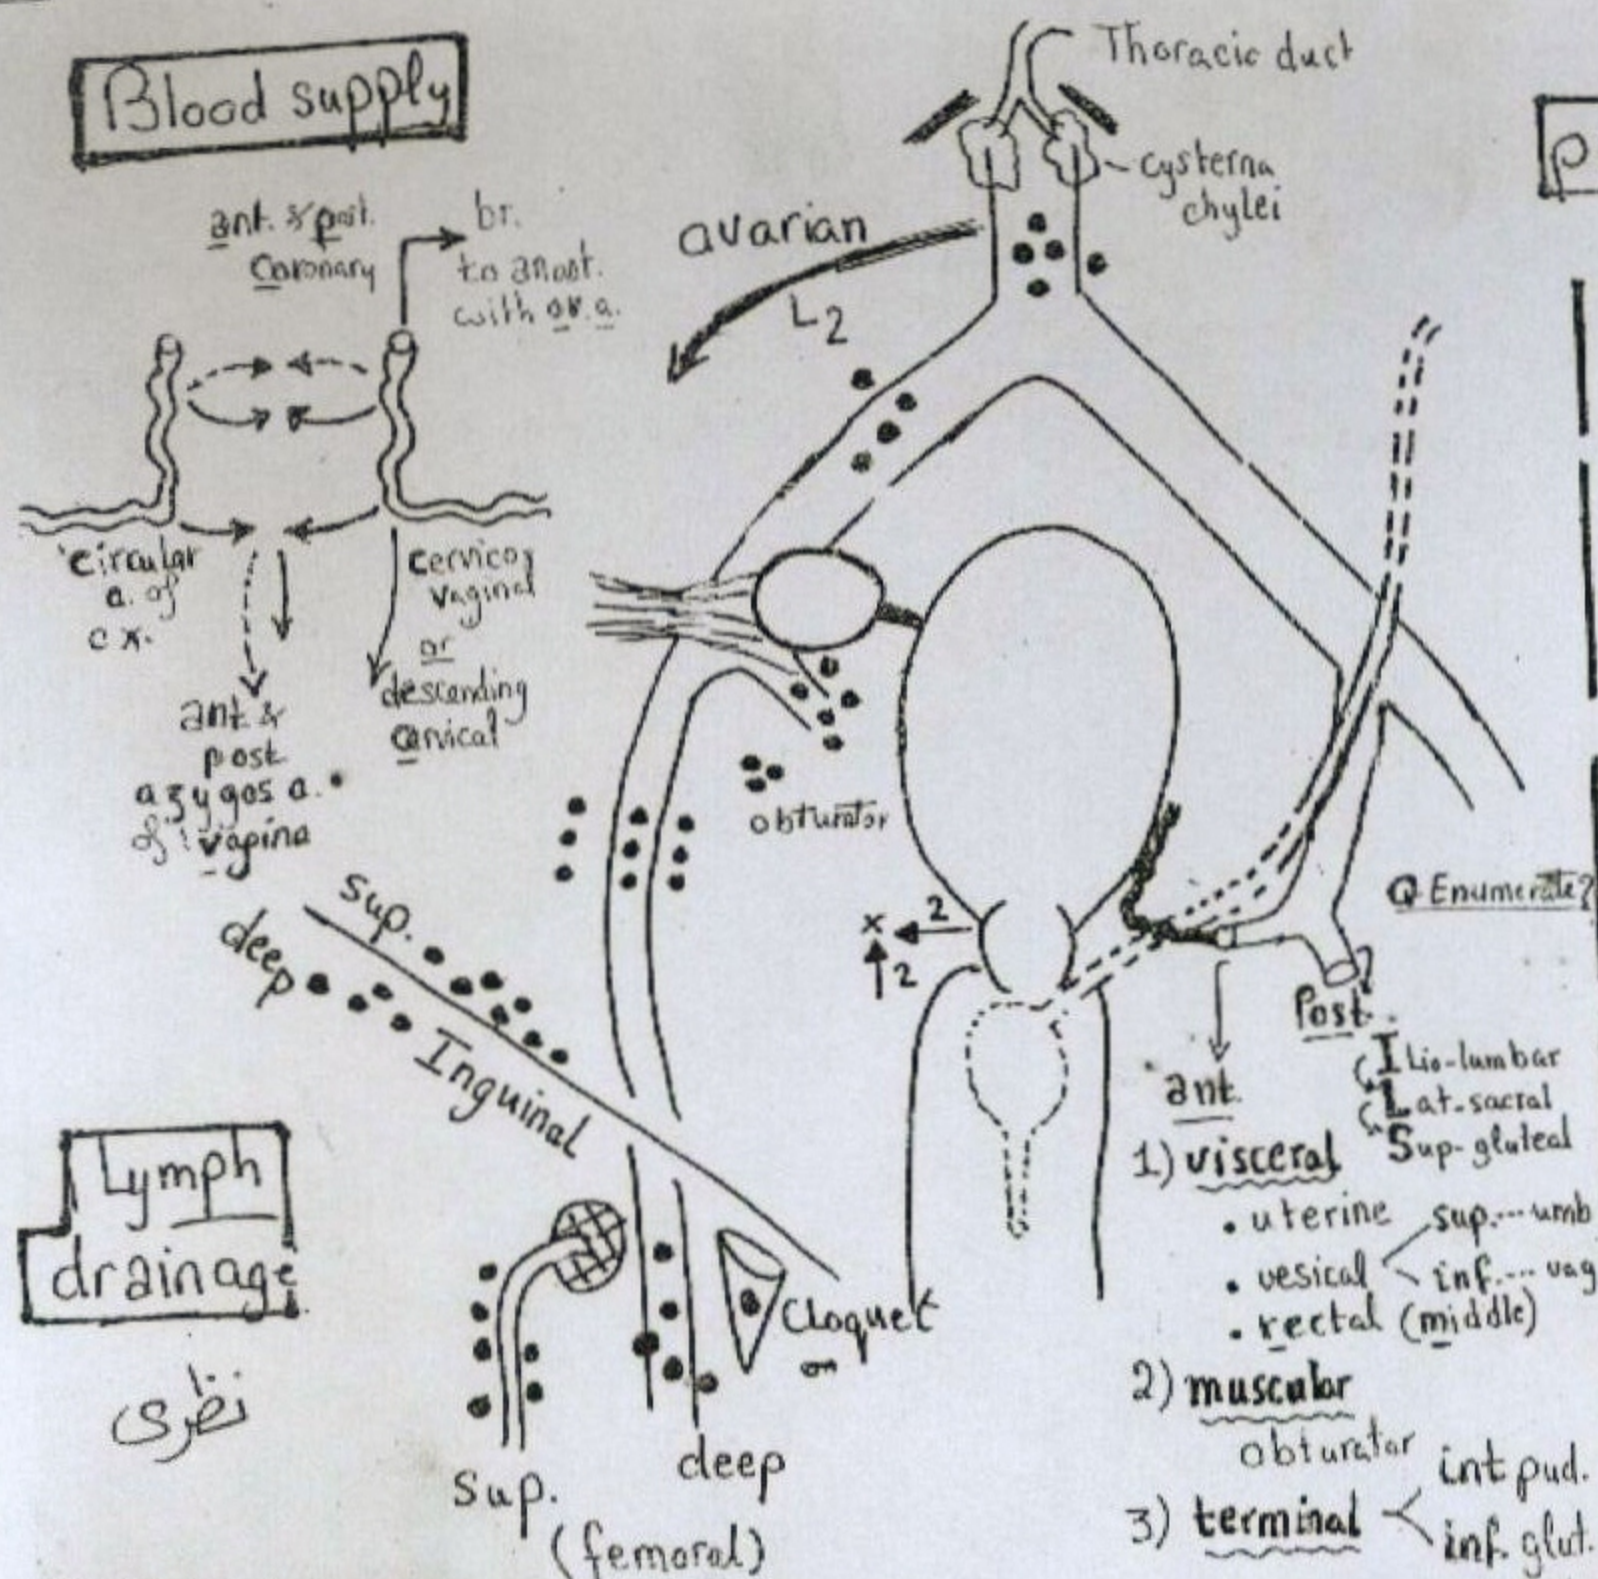 Blood supply
ant. & post.
coronary
br.
to anast.
with ov. a.
circular
a. of
cx.
cervico
vaginal
or
descending
cervical
ant &
post
azygos a.
of vagina
Thoracic duct
cysterna
chylei
avarian
L2
obturator
sup.
deep
Inguinal
x
2
2
Lymph
drainage
نظرى
Cloquet
Sup.
deep
(femoral)
P
Q Enumerate?
Post.
ILio-lumbar
Lat-sacral
Sup-gluteal
ant.
1) visceral
• uterine
• vesical
sup.---umb
inf.--- vag
• rectal (middle)
2) muscular
obturator
3) terminal
int pud.
inf. glut.